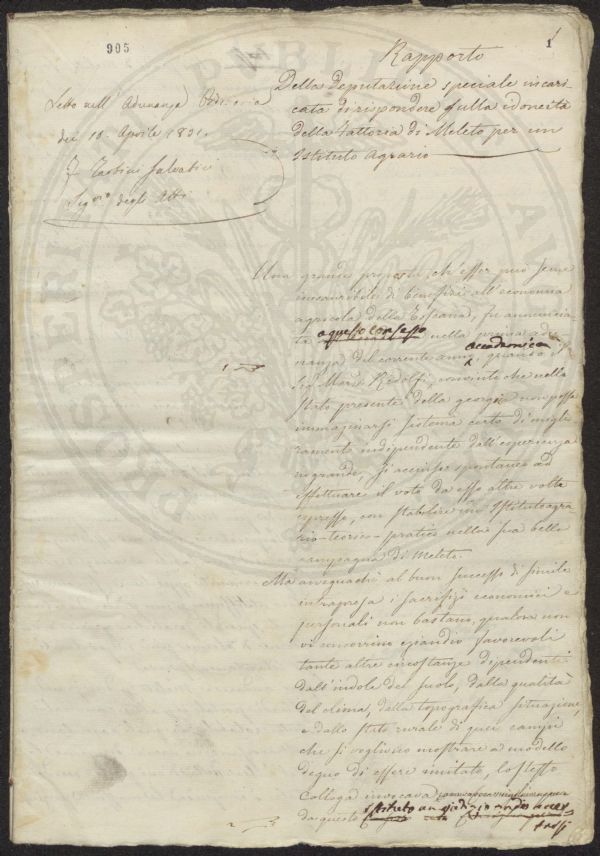 905
1
Rapporto
Della deputazione speciale incari-
cata di rispondere sulla idoneità
della Fattoria di Meleto per un
Istituto Agrario
Letto nell' Adunanza Ordinaria
dei 10. Aprile 1831.
Tartini Salvatici
Seg.rio degli Atti
Una grande proposta, ch'esser può seme
di benefizi all'economia
agricola della Toscana, fu annuncia-
ta a questo consesso nella prima adu-
nanza accademica del corrente anno, quando il
Sig. March. Ridolfi, convinto che nello
stato presente della georgia non possa
immaginarsi sistema certo di miglio-
ramento indipendente dall'esperienza
in grande, si accinse spontaneo ad
effettuare il voto da esso altre volte
espresso, con stabilire un Istituto agra-
rio-teorico-pratico nella sua bella
campagna di Meleto.
Ma avvegnachè al buon successo di simile
intrapresa i sacrifizi economici e
personali non bastano, qualora non
vi concorrino eziandio favorevoli
tante altre circostanze dipendenti
dall'indole del suolo, dalla qualità
del clima, dalla topografica situazione,
e dallo stato rurale di quei campi
che si vogliono mostrare a modello
degno di essere imitato, lo stesso
Collega invocava
da questo istituto un giudizio